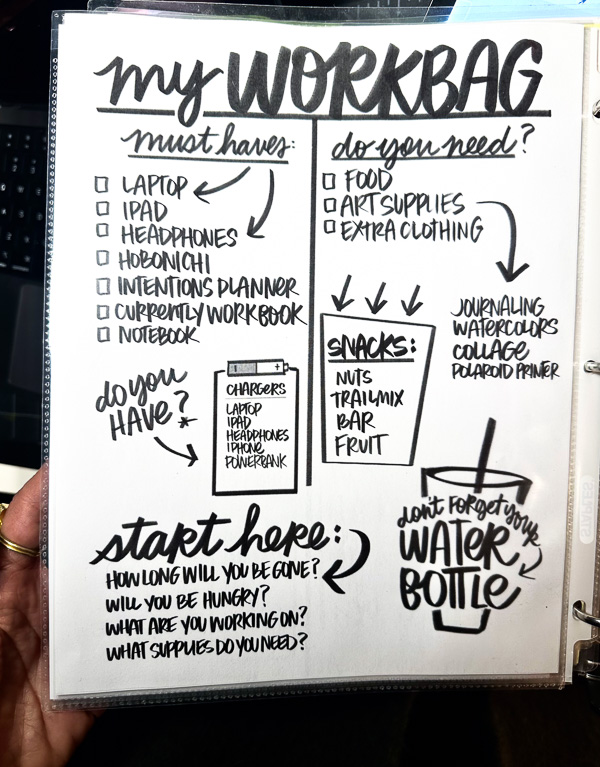 my WORKBAG
must haves:
LAPTOP
IPAD
HEADPHONES
HOBONICHI
INTENTIONS PLANNER
CURRENTLY WORKBOOK
NOTEBOOK
do you
HAVE?*
CHARGERS
LAPTOP
IPAD
HEADPHONES
IPHONE
POWERBANK
do you need?
FOOD
ART SUPPLIES
EXTRA CLOTHING
JOURNALING
WATERCOLORS
COLLAGE
POLAROID PRINTER
SNACKS:
NUTS
TRAILMIX
BAR
FRUIT
start here:
HOW LONG WILL YOU BE GONE?
WILL YOU BE HUNGRY?
WHAT ARE YOU WORKING ON?
WHAT SUPPLIES DO YOU NEED?
don't FORGET your
WATER
BOTTLE